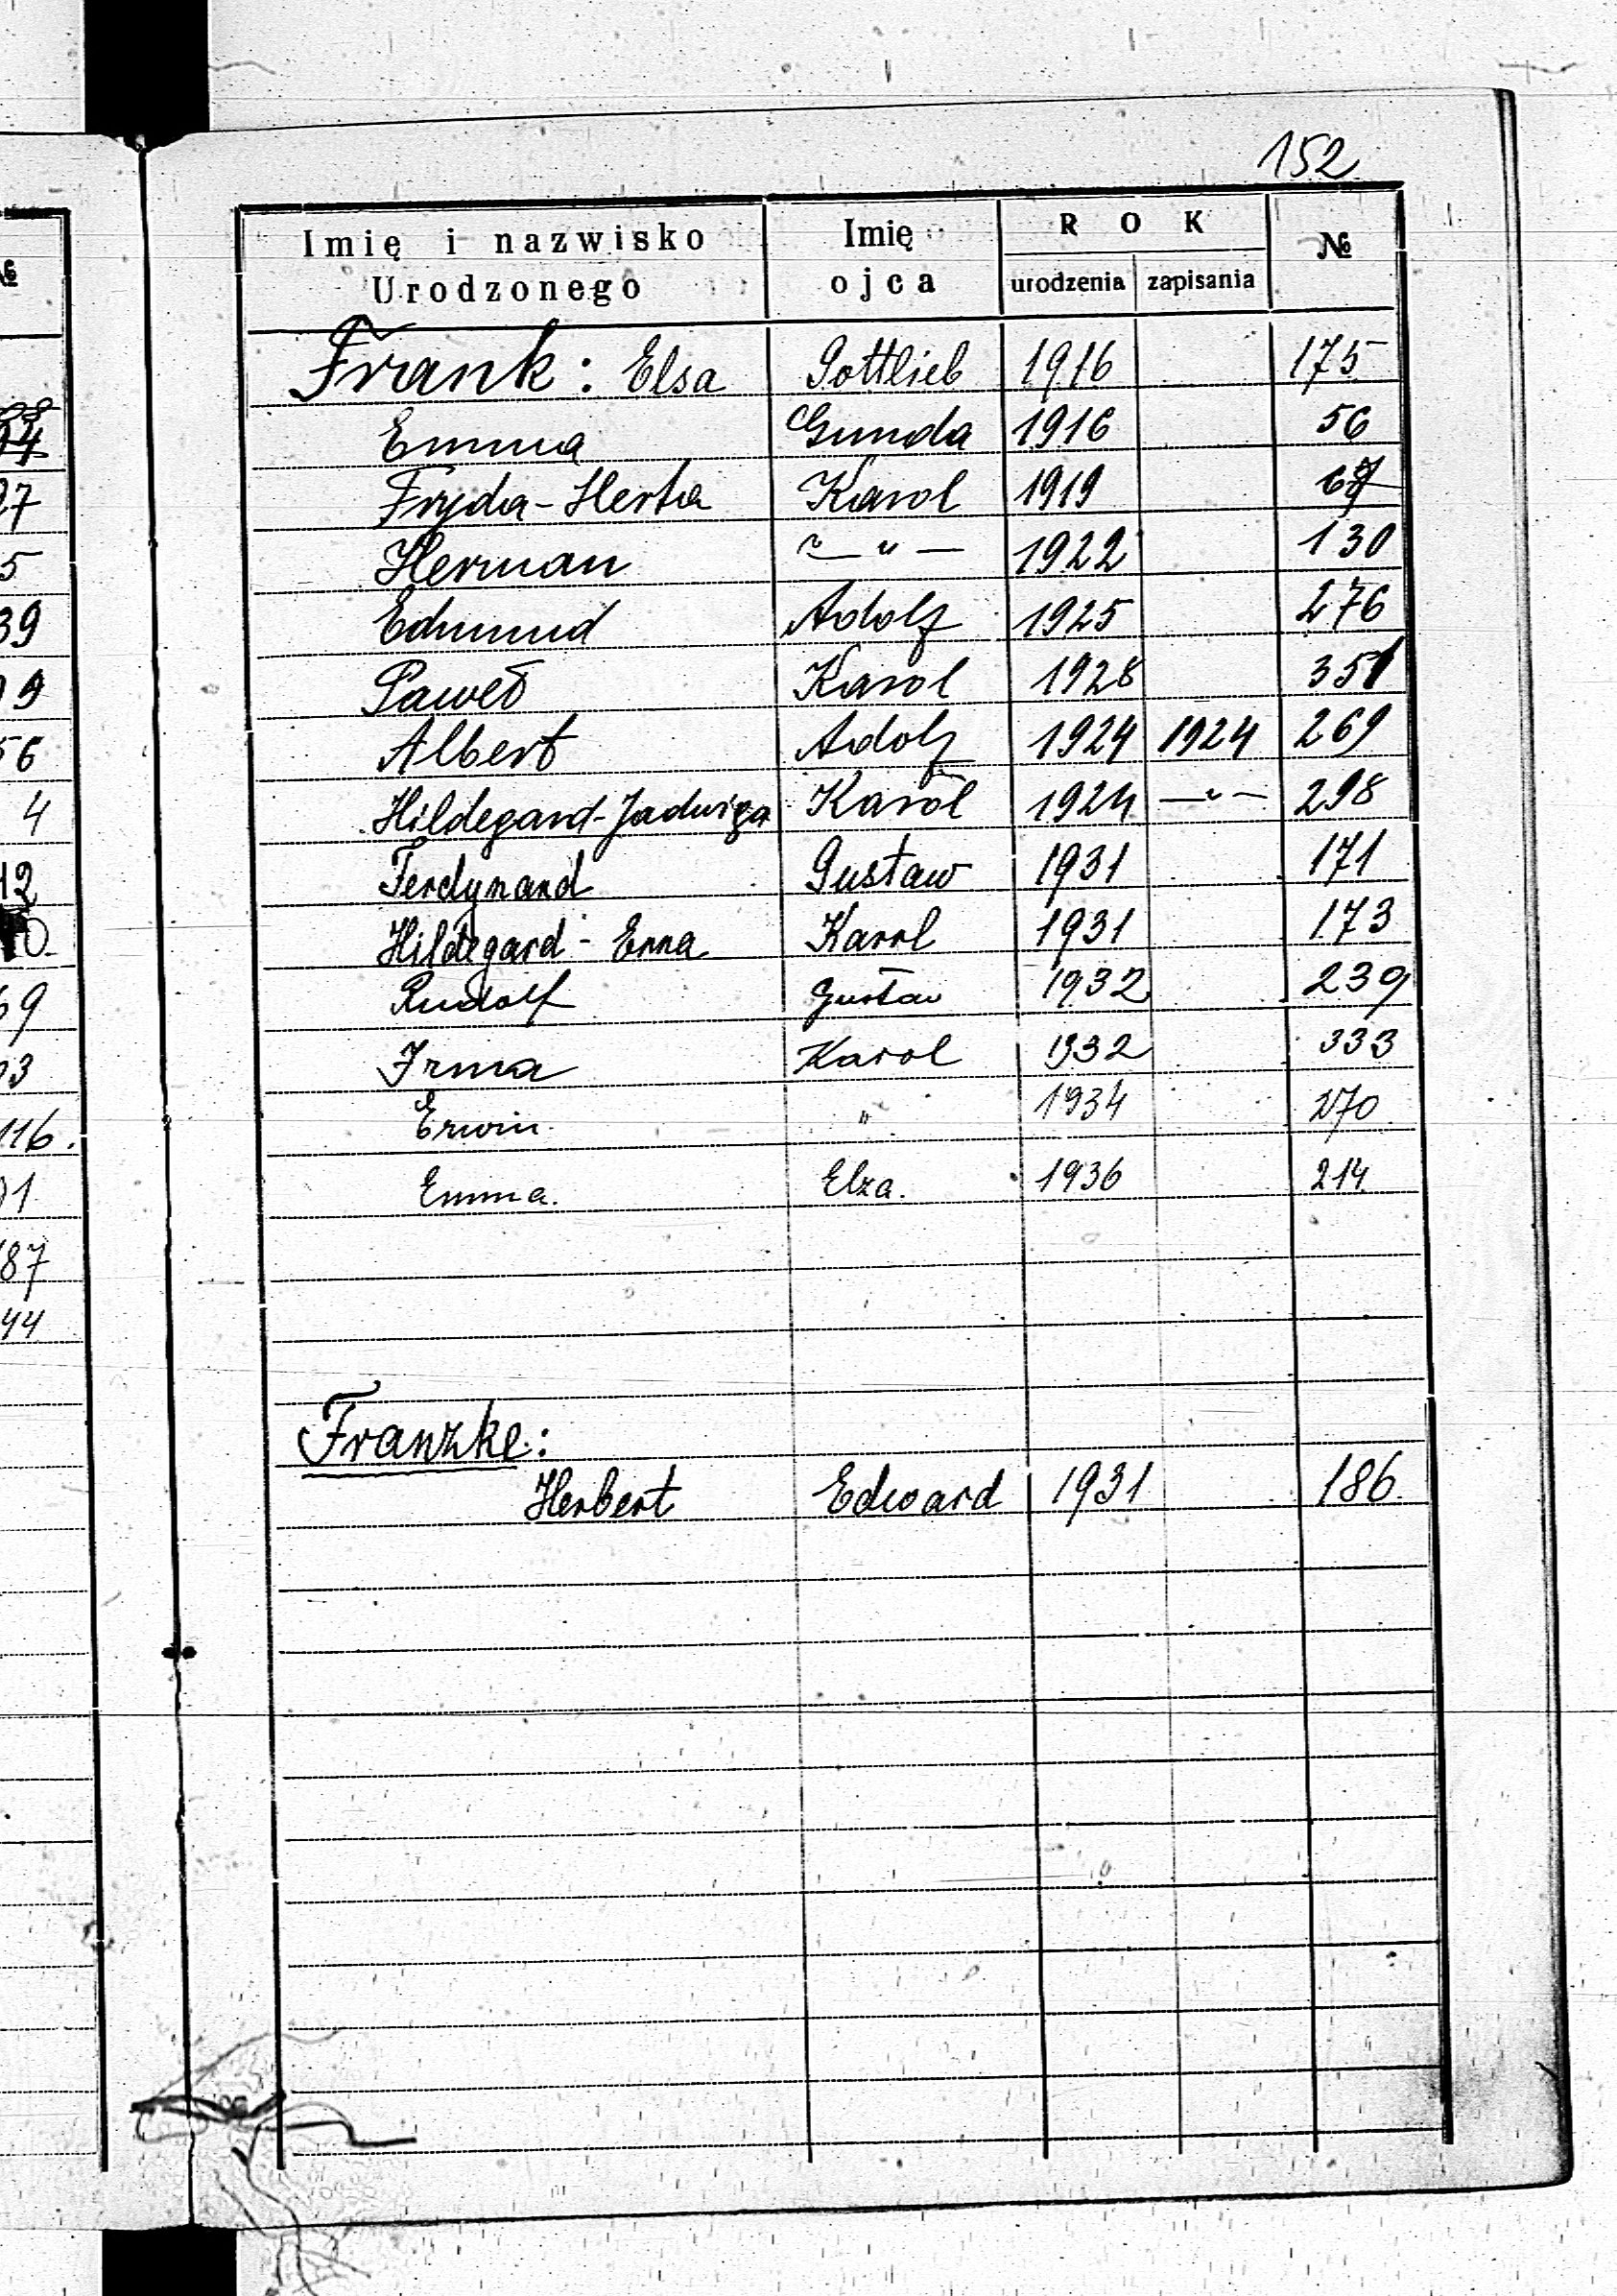 152
Imię i nazwisko Urodzonego | Imię ojca | ROK urodzenia | zapisania | №
Frank: Elsa Gottlieb 1916 175
Emma Gunda 1916 56
Fryda-Herta Karol 1919
Herman —„— 1922 130
Edmund Adolf 1925 276
Paweł Karol 1928 351
Albert Adolf 1924 1924 269
Hildegard-Jadwiga Karol 1924 —„— 298
Ferdynand Gustaw 1931 171
Hildegard - Erna Karol 1931 173
Rudolf Gustaw 1932 239
Irma Karol 1932 333
Erwin. „ 1934 270
Emma. Elza. 1936 214
Franzke:
Herbert Edward 1931 186
№
27
5
39
9
56
4
42
69
03
116.
01
87
44